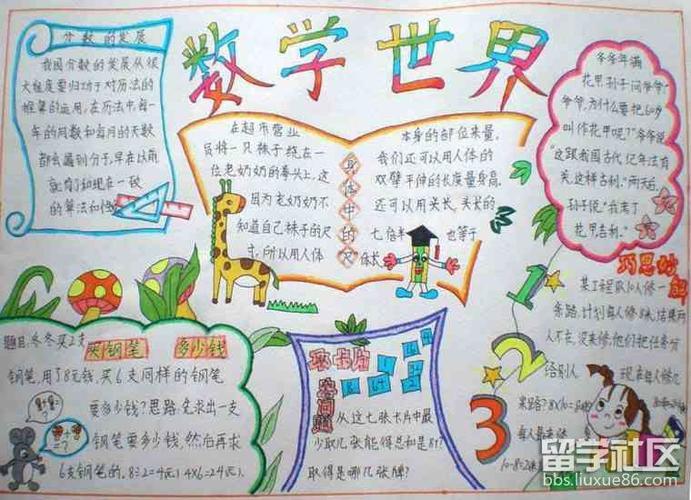 数学世界
分数的发展
我国分数的发展从很
大程度要归功于对历法的
推算的运用,在历法中,每一
年的周数和每月的天数
都会遇到分子,早在以前
就有了和现在一致
的算法
在超市营业
员将一只袜子绕在一
位老奶奶的拳头上,这
因为老奶奶不
知道自己袜子的尺
寸,所以用人体
身体中的尺
本身的部位来量,
我们还可以用人体的
双臂平伸的长度量身高,
还可以用头长,头长的
七倍半 也等于
体长
爷爷年满
花甲,孙子问爷爷:"
爷爷,为什么要把60岁
叫作花甲呢?"爷爷说:
"这跟我国古代亿年法有
关,这样吉利."两天后,
孙子说:"我考了
花甲,吉利."
巧思妙解
某工程队10人修一
条路,计划每人修8米,结果两
人不在,没来修,他们把任务分
给别人
现在每人修几
米路?
1
2
3
题目:冬冬买2支
买钢笔 多少钱
钢笔,用了8元钱,买6支同样的钢笔
要多少钱?思路:先求出一支
钢笔要多少钱,然后再求
6支钢笔的.8÷2=4(元) 4×6=24(元).
从这七张卡片中最
少取几张能得总和是8?
取得是哪几张牌?
留学社区
bbs.liuxue86.com